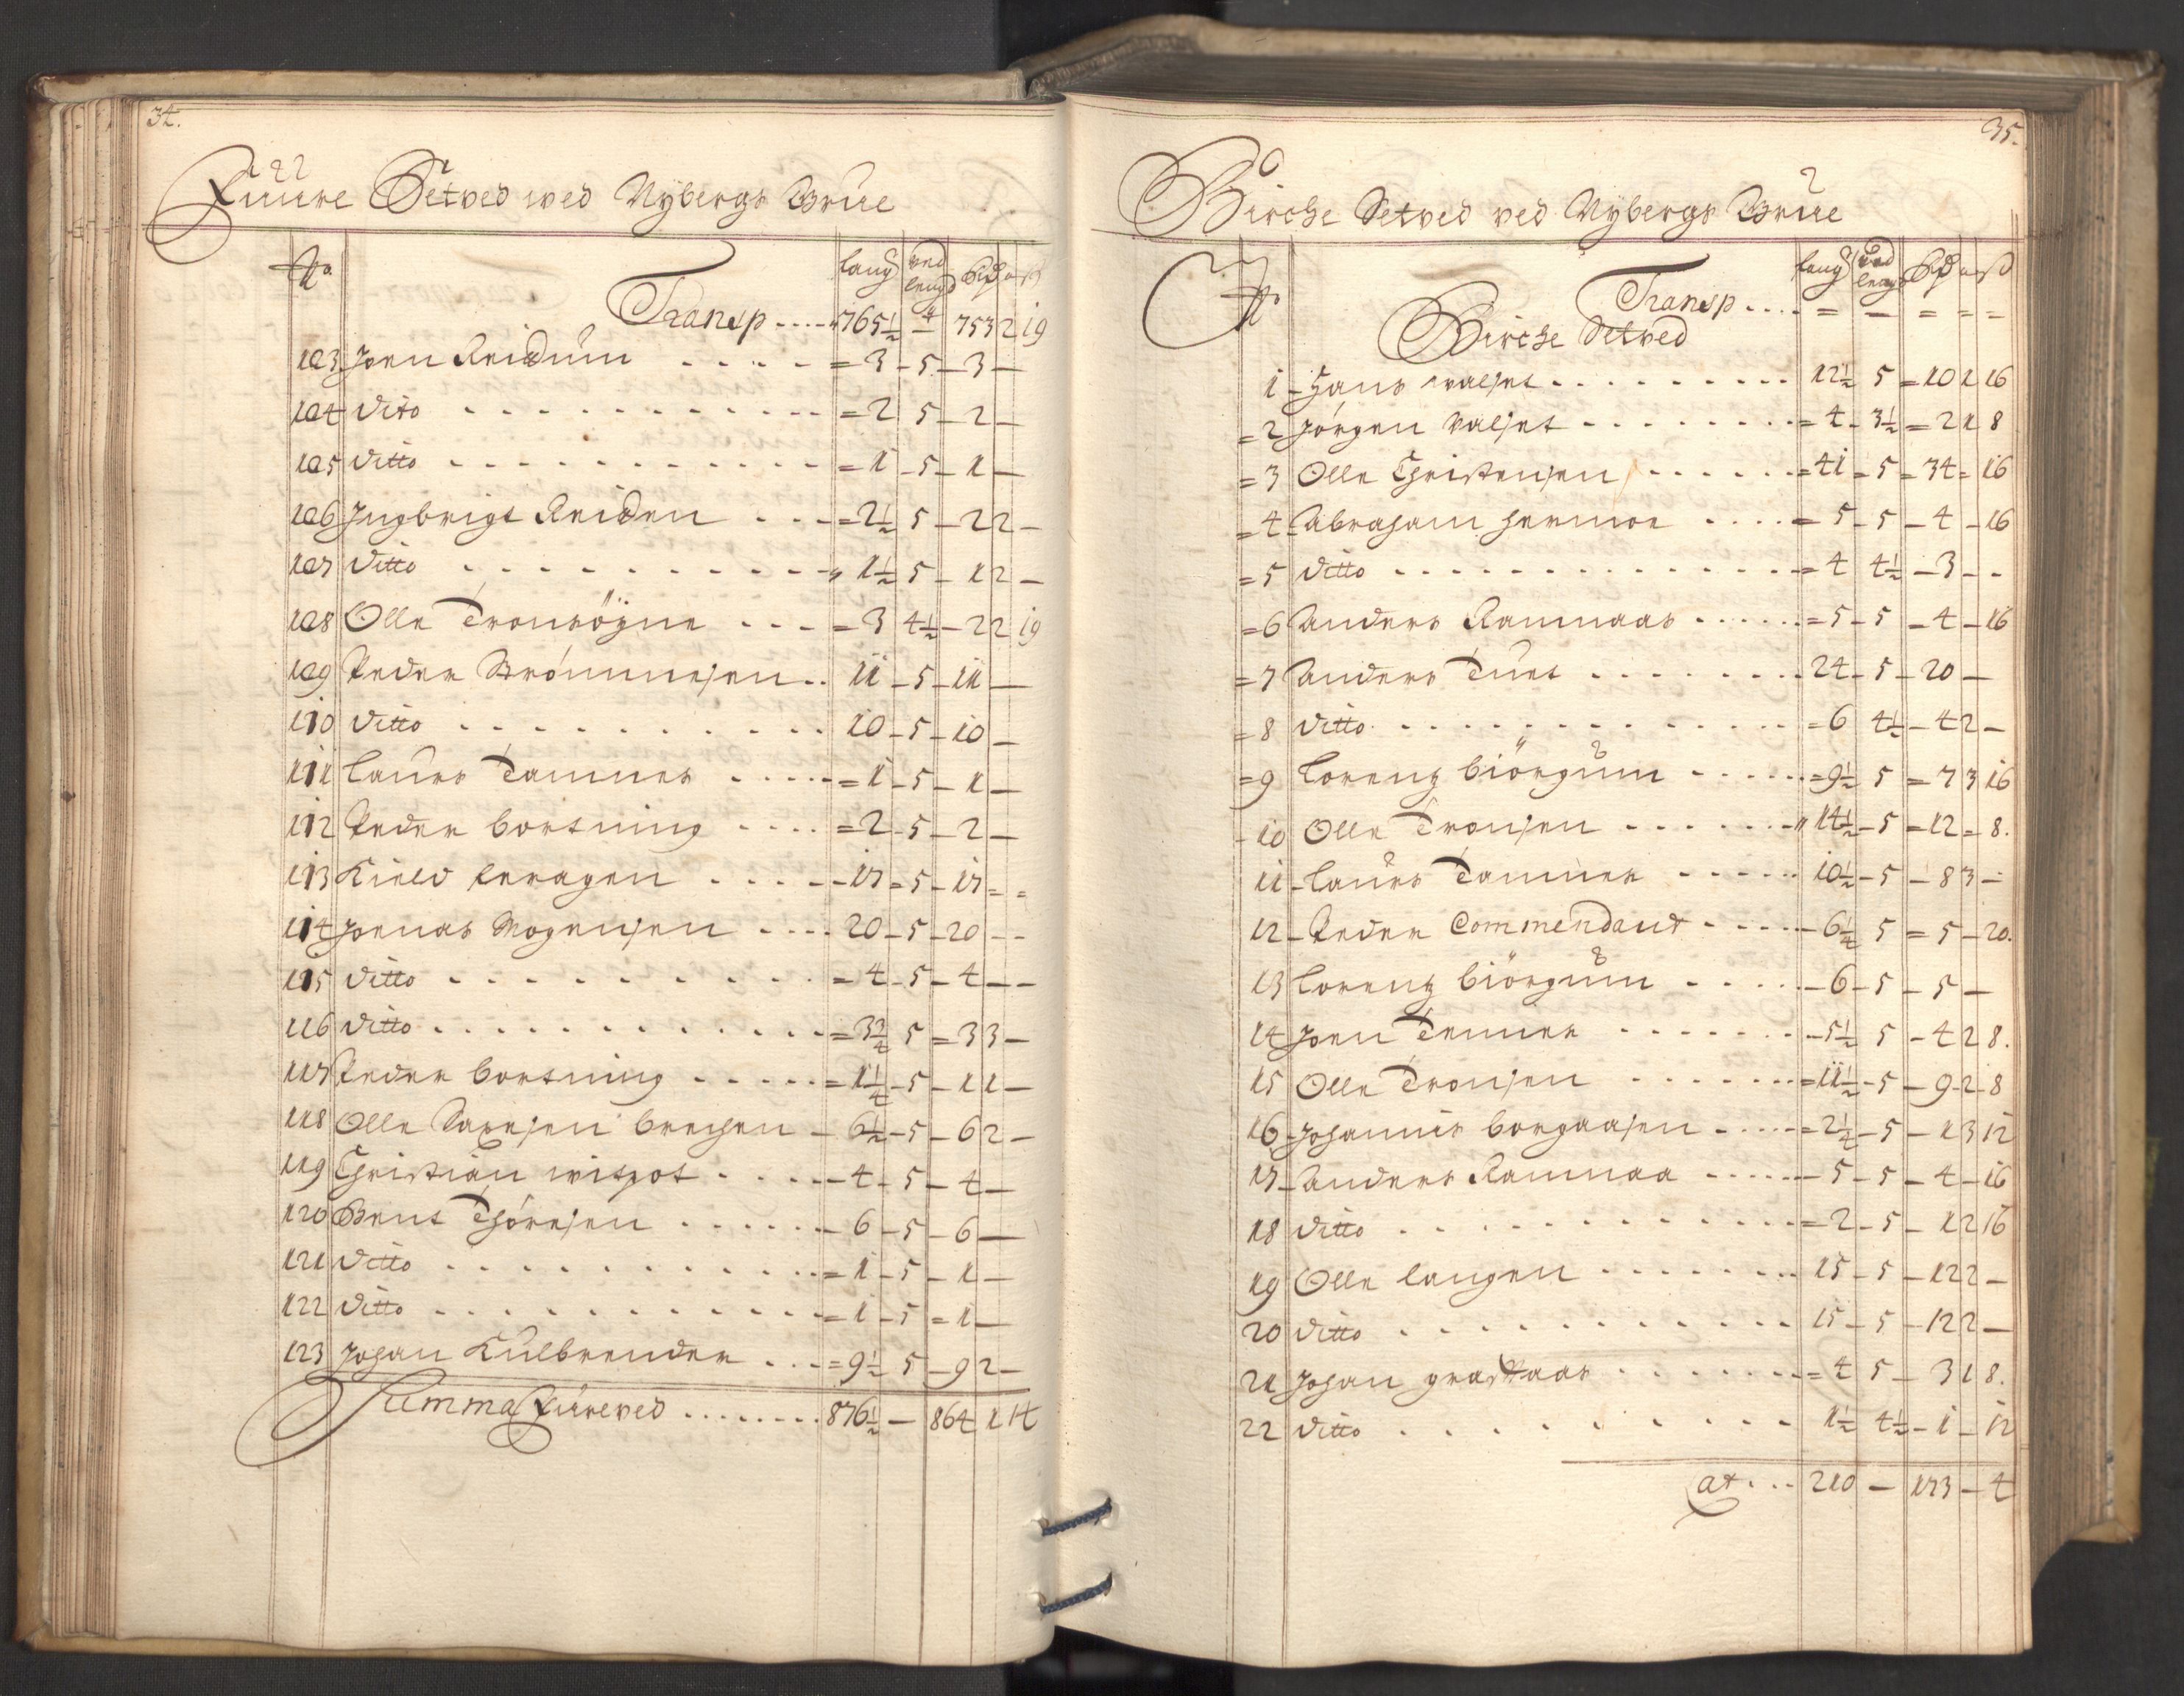 34.
Fuure Setved wed Nÿbergs Grue
No laug ved lengd Rdr ort ß
Transp .... 765½ 4 753 2 19
103 Joen Reidum .... = 3 - 5 - 3 -
104 dito .... = 2 5 - 2 -
105 ditto .... = 1 - 5 - 1 -
106 Jngbrigt Reiden .... = 2½ 5 - 2 2 -
107 ditto .... 1½ 5 - 1 2 -
108 Olle Tronsögne .... = 3 4½ - 2 2 19
109 Peder Strömmesen .. 11 - 5 - 11 -
110 ditto .... 10 - 5 - 10 -
111 Laurs Tamnes .... = 1 - 5 - 1 -
112 Peder Bortning .... = 2 - 5 - 2 -
113 Kield feragen .... 17 = 5 - 17 = =
114 Joenas Mogensen .... 20 - 5 - 20 - -
115 ditto .... = 4 - 5 - 4 - -
116 ditto .... = 3¾ 5 = 3 3 -
117 Peder Bortning .... = 1¼ - 5 - 1 1 -
118 Olle Larsen Brechen - 6½ - 5 - 6 2 -
119 Christian witzot .... - 4 - 5 - 4 -
120 Bent Thöresen .... - 6 - 5 - 6 -
121 ditto .... = 1 - 5 - 1 -
122 ditto .... = 1 - 5 = 1 -
123 Johan Kulbrender .... = 9½ 5 - 9 2 -
Summa Fuureved .... 876½ - 864 1 14
35.
Birche Setved ved Nÿbergs Grue
No laug ved lengd Rdr ort ß
Transp .... = - = = =
Birche Setved
1 - Hans walset .... 12½ 5 = 10 1 16
= 2 Jörgen Valset .... = 4 - 3½ = 2 1 8
= 3 Olle Christensen .... = 41 = 5 = 34 = 16
= 4 Abraham hermoe .... = 5 - 5 - 4 - 16
= 5 ditto .... = 4 4½ - 3 - -
= 6 Anders Ranmaas .... = 5 - 5 - 4 - 16
= 7 Anders Turt .... 24 - 5 - 20 -
= 8 ditto .... = 6 4½ - 4 2 -
= 9 Lorentz Biörgum .... = 9½ 5 = 7 3 16
- 10 Olle Tronsen .... 14½ - 5 = 12 = 8.
11 - Laurs Tamnes .... 10½ - 5 - 8 3 -
12 - Peder Commendant .... - 6¼ 5 = 5 - 20.
13 Lorentz Biörgum .... - 6 - 5 - 5 -
14 Joen Temner .... - 5½ 5 - 4 2 8.
15 Olle Tronsen .... = 11½ - 5 - 9 - 2 - 8
16 - Johannis Borgaasen .... = 2¼ - 5 - 1 3 12
17 - Anders Ranmaa .... - 5 - 5 - 4 - 16
18 ditto .... = 2 - 5 - 1 2 16
19 Olle Langen .... 15 - 5 - 12 2 -
20 ditto .... 15 - 5 - 12 2 -
21 Johan grastaas .... = 4 5 - 3 1 8.
22 ditto .... 1½ 4½ - 1 - 12
at ... 210 - 173 - 4